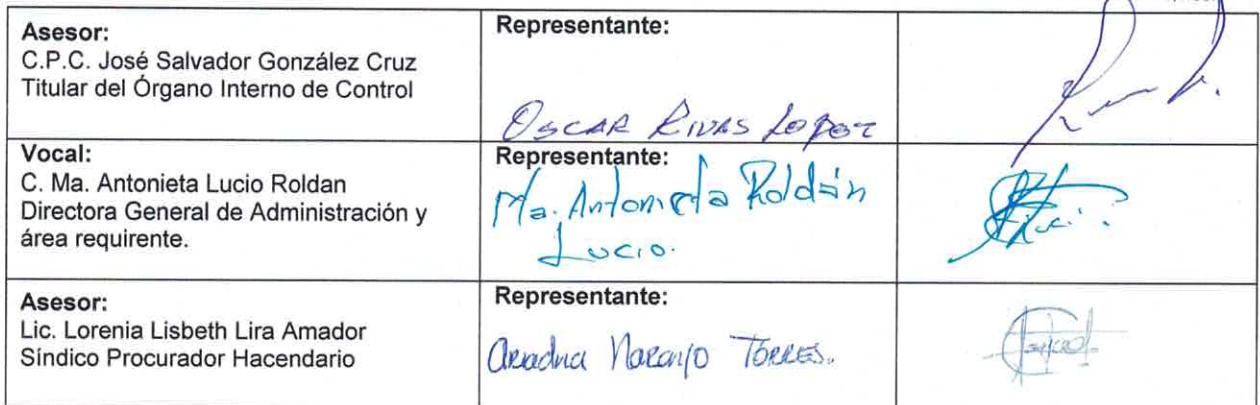 Asesor:
C.P.C. José Salvador González Cruz
Titular del Órgano Interno de Control
Representante:
OSCAR RIVAS LOPEZ
Vocal:
C. Ma. Antonieta Lucio Roldan
Directora General de Administración y
área requirente.
Representante:
Ma. Antonieta Roldán
Lucio.
Asesor:
Lic. Lorenia Lisbeth Lira Amador
Síndico Procurador Hacendario
Representante:
Ariadna Naranjo TORRES.